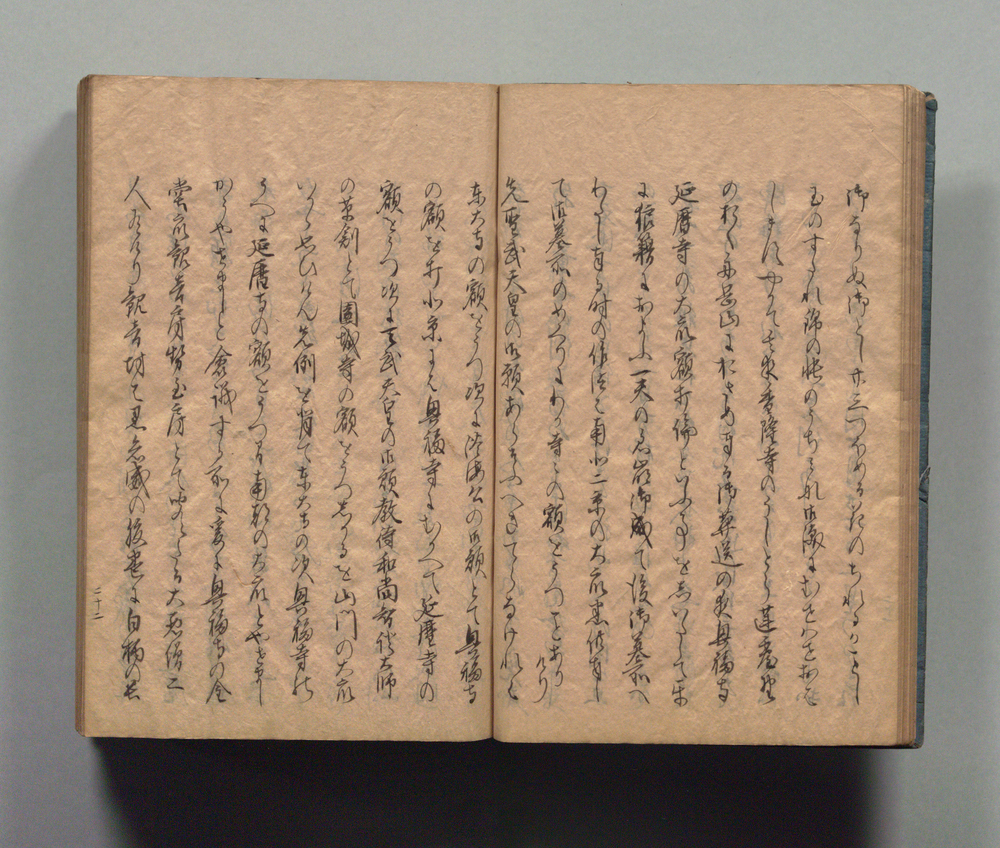 御なりぬ御とし廿三つほめる花のちれるかことし
玉のすたれ錦の帳のうちみな御涙にむせはせおは
します やかて其夜香隆寺のうしとら蓮臺野
のおく舟岡山におさめ奉る御葬送の夜興福寺
延暦寺の大衆額打論といふ事をしいたして互
に狼藉におよふ一天の君崩御成て後御墓所へ
わたし奉る時の作法は南北二京の大衆悉供奉し
て御墓所のめくりにわか寺々の額をうつことありけり
先聖武天皇の御願あらそふへきてらなけれは
東大寺の額をうつ次に淡海公の御願とて興福寺
の額を打北京には興福寺にむかへて延暦寺の
額をうつ次に天武天皇の御願教待和尚智證大師
の草創とて園城寺の額をうつしかるを山門の大衆
いかゝ思ひけん先例を背て東大寺の次興福寺の
うへに延暦寺の額をうつ間南都の大衆とやせまし
かうやせましと僉議する所に爰に興福寺の金
堂衆観音房勢至房とて聞えたる大悪僧二
人ありけり観音坊は黒糸威の腹巻に白柄の長
二十二